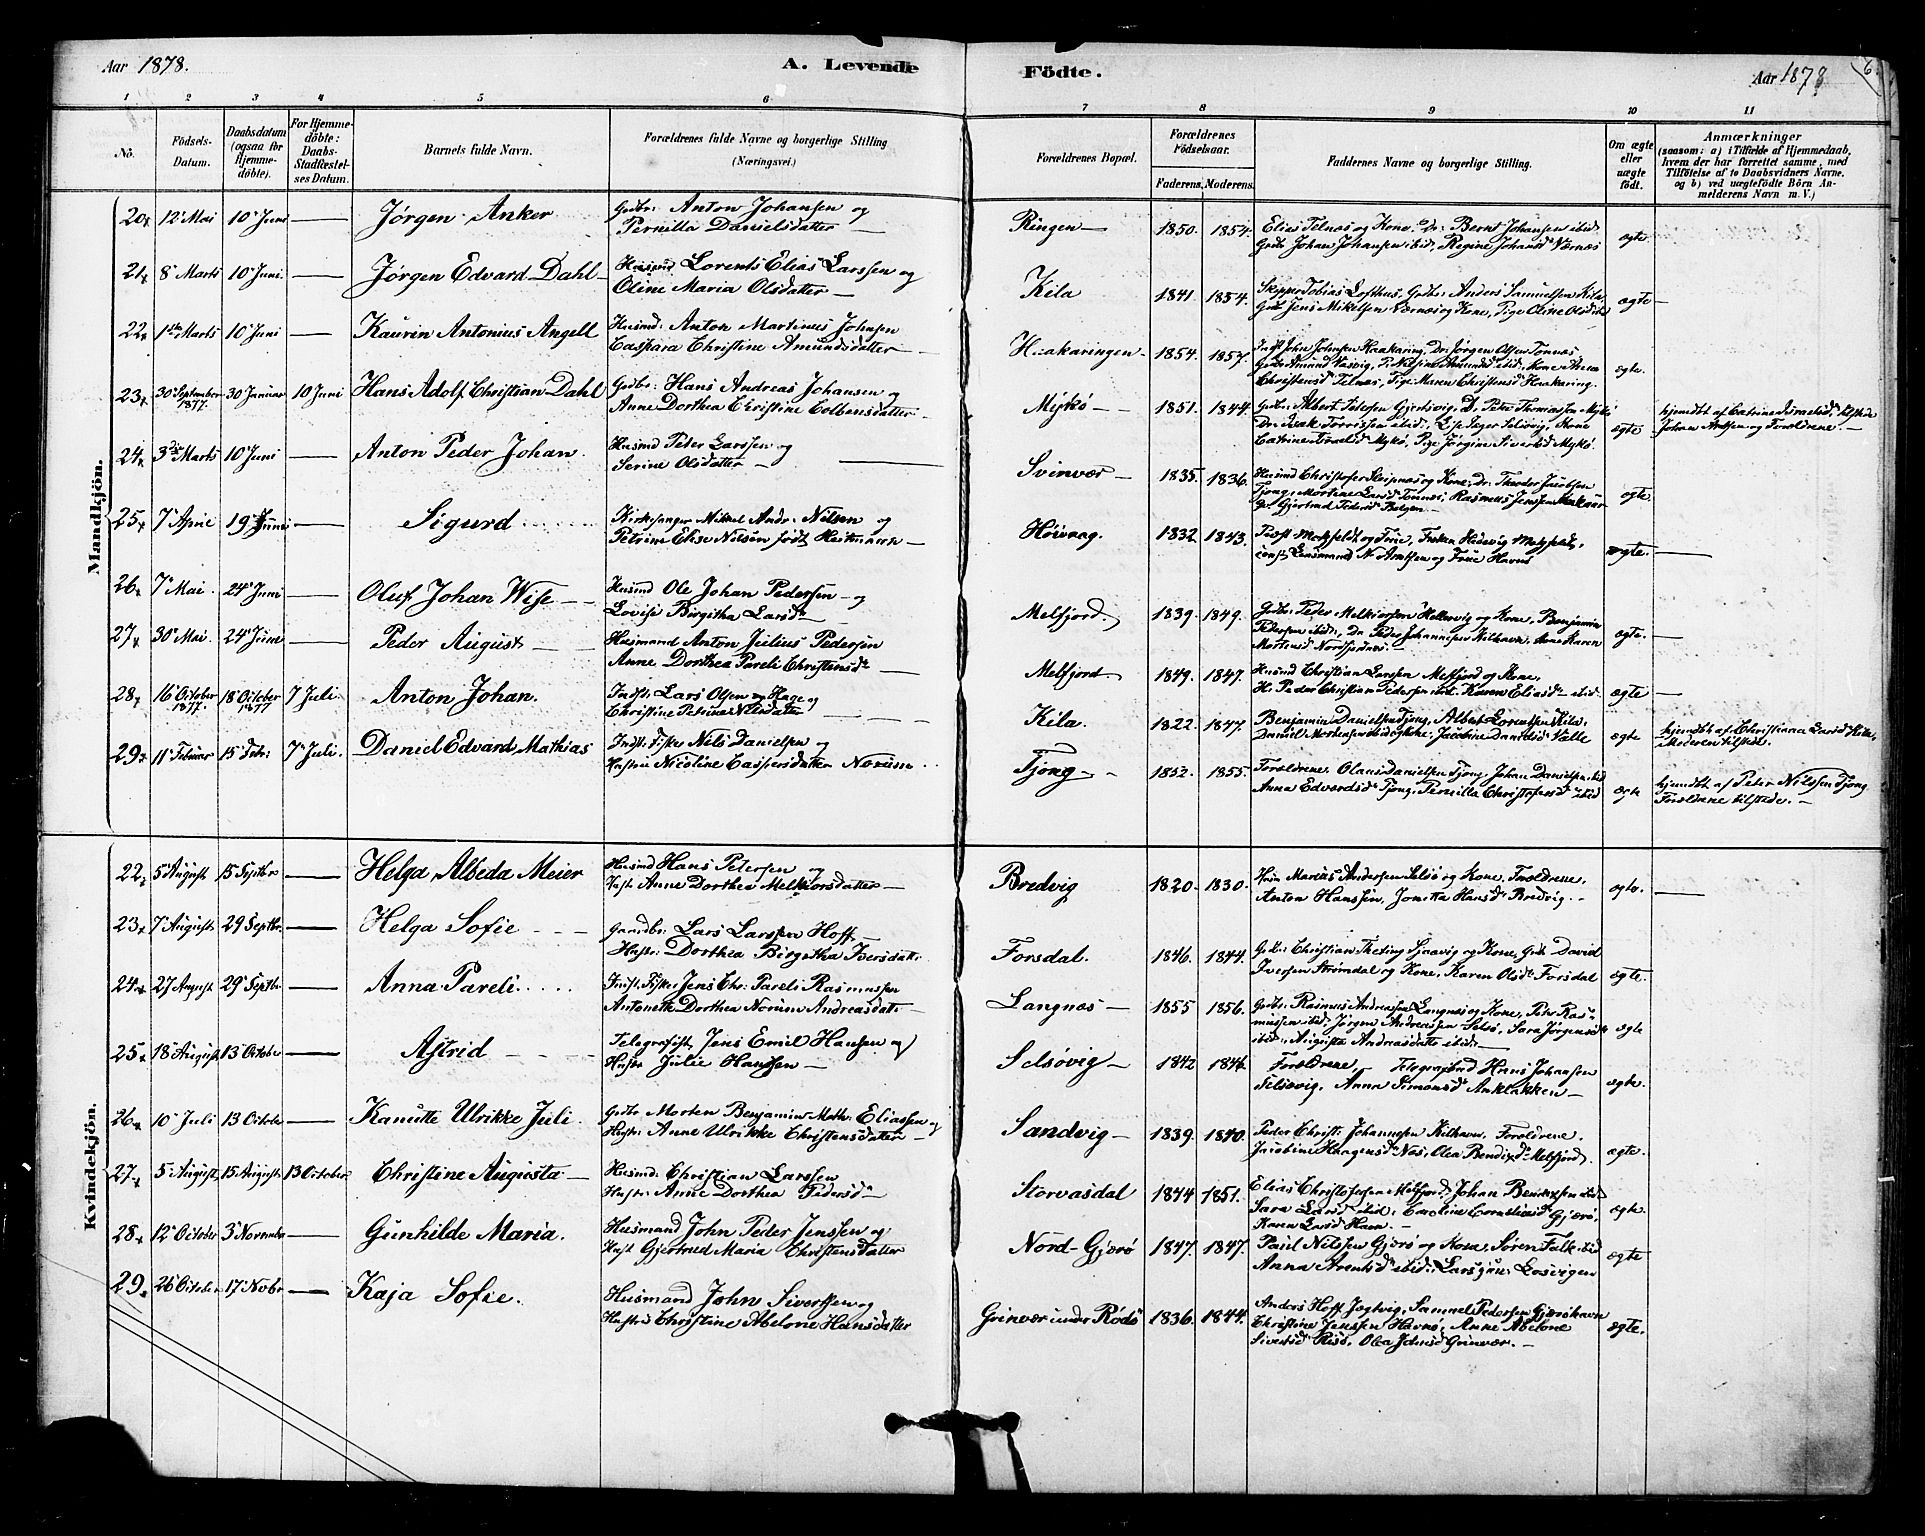 Aar 1878.
A. Levende
Födte.
Aar 1878
6.
1 2 3 4 5 6 7 8 9 10 11
No.
Födsels-
Datum.
Daabsdatum
(ogsaa for
Hjemme-
döbte).
For Hjemme-
döbte:
Daabs-
Stadfæstel-
ses Datum.
Barnets fulde Navn.
Forældrenes fulde Navne og borgerlige Stilling
(Næringsvei.)
Forældrenes Bopæl.
Forældrenes
Födselsaar.
Faderens. Moderens.
Faddernes Navne og borgerlige Stilling.
Om ægte
eller
uægte
födt.
Anmærkninger
(saasom: a) i Tilfælde af Hjemmedaab,
hvem der har forrettet samme, med
Tilföielse af to Daabsvidners Navne,
og b) ved uægtefödte Börn An-
melderens Navn m. V.)
Mandkjön.
20 12 Mai 10 Juni — Jørgen Anker
Gdbr: Anton Johansen og
Pernilla Danielsdatter —
Ringen — 1850. 1854.
Elias Telnæs og Kone. Dr: Bernt Johansen ibid,
Gdbr Johan Johansen ibid, Regine Johansd Værnæs
ægte
21 8 Marts 10 Juni — Jørgen Edvard Dahl
Husmd Lorents Elias Larssen og
Oline Maria Olsdatter —
Kila 1841. 1854.
Skipper Tobias Lofthus, Gdbr: Anders Samuelsen Kila
Gdbr Jens Mikelsen Værnæs og Kone, Pige Oline Olsd ibid
ægte —
22 1ste Marts 10 Juni — Kaurin Antonius Angell
Husmd: Anton Martinus Johnsen
Caspara Christine Amundsdatter —
Haakaringen 1854. 1857.
Indst John Johnsen Haakaring, Dr: Jørgen Olsen Tonnæs
Christensd Telnæs, Pige Maren Christensd Haakaring.
ægte.
23 30 September 1877. 30 Januar 10 Juni Hans Adolf Christian Dahl
Gdbr: Hans Andreas Johansen og
Anne Dorthea Christine Colbensdatter —
Mykø — 1851. 1844.
Gdbr: Albert Petersen Gjersvig, D: Peter Thomassen Mykø
Catrine Israelsd Mykø, Pige Jørgine Sivertsd Mykø.
ægte
hjemdbt af Catrine Israelsd,
Johan Antsen og Forældrene —
24 3die Marts 10 Juni — Anton Peder Johan.
Husmd Peter Larssen og
Serine Olsdatter —
Svinvær — 1835. 1836.
Husmd Christofer Sleipnæs og Kone, Dr: Theodor Jacobsen
Tjong, Mortine Larsd Tonnæs, Rasmus Jenssen
Gjertrud Pedersd Bolgen —
ægte.
25 7 April 19 Juni — Sigurd
Kirkesanger Mikkel Andr: Nilsen og
Petrine Elise Nilsen født Heitmann —
Høivaag. 1832 1843.
Provst Motzfeldt og Frue, Frøken Hedevig Motzfeldt,
const Lensmand N Arntsen og Frue Havnø
ægte. —
26 7 Mai. 24 Juni — Oluf Johan Wise —
Husmd Ole Johan Pedersen — og
Lovise Birgitha Larsdr —
Melfjord. 1839. 1849.
Gdbr: Peder Melkiorssen Hellervig og Kone, Benjamin
Pedersen ibid, Dr Peder Johannesen Kilhavn, Anne Karen
Mortensd Nordfjordnæs. —
ægte. —
27 30 Mai. 24 Juni — Peder August —
Husmand Anton Julius Pedersen
Anne Dorthea Pareli Christensdr —
Melfjord 1849. 1847.
Husmd Christian Larssen Melfjord og Kone,
H. Peder Christian Pedersen ibid. Karen Eliasdr ibid.
ægte —
28 16 October 1877. 18 October 1877 7 Juli. Anton Johan.
Indst: Lars Olsen og
Christine Petrine Nilsdatter —
Kila. 1822. 1847.
Benjamin Danielsen Tjong, Albert Lorentsen Kila,
Daniel Mortensen ibid, Jacobine Danielsd Valle
ægte
hjemdbt af Christianna Larsd Kila,
Moderen tilsted.
29 11 Februar 15 Febr: 7 Juli. Daniel Edvard Mathias
Indst: Fisker Nils Danielsen og
Hustru Nicoline Caspersdatter Norum.
Tjong — 1852. 1855.
Forældrene, Olaus Danielsen Tjong, Johan Danielsen ibid
Anna Edvardsdr Tjong, Pernilla Christofersdr ibid
ægte
hjemdbt af Peter Nilssen Tjong
Forældrene tilstede. —
Kvindekjön.
22 5 August 15 Septbr — Helga Albeda Meier
Husmd Hans Petersen og
Hust: Anne Dorthea Melkiorsdatter —
Bredvig 1820. 1830.
Husm Marius Andersen Selsø og Kone, Forældrene,
Anton Hanssen, Jonetta Hansdr Bredvig. —
ægte. —
23 7 August 29 Septbr. — Helga Sofie —
Gaardbr: Lars Larssen Hoff —
Hustr: Dorthea Birgitha Iversdatter
Forsdal. 1846. 1844.
Gdbr: Christian Theting Sjaavig og Kone, Gdbr David
Iversen Strømdal og Kone, Karen Olsdr Forsdal
ægte.
24 27 August 29 Septbr — Anna Pareli.
Indst. Fisker Jens Chr: Pareli Rasmussen
Antonette Dorthea Norum Andreasdatr —
Langnæs — 1855 1856.
Gdbr: Rasmus Andreassen Langnæs og Kone, Peter Ras-
mussen ibid, Jørgen Andreassen Selsø, Sara Jørgensdr
ibid, Augusta Andreasdatter ibid —
ægte
25 18 August 13 October — Astrid —
Telegrafist Jens Emil Hansen og
Hustr Julie Hansen —
Selsövig — 1842 1846.
Forældrene, — Telegrafbud Hans Johansen
Selsøvig, Anna Simonsdr Anklakken —
ægte.
26 10 Juli 13 October — Kanutte Ulrikke Juli.
Gdbr Morten Benjamin Math: Eliassen og
Hustr: Anne Ulrikke Christensdatter —
Sandvig — 1839. 1840.
Peder Christ: Johannesen Kilhavn, Forældrene,
Jacobine Haagensdr Næs, Olea Bendixdr Melfjord.
ægte.
27 5 August 15 August 13 October Christine Augusta —
Husmd: Christian Larssen
Hustr: Anne Dorthea Pedersdr —
Storvasdal 1844 1851.
Elias Christofersen Melfjord, Johan Bendixsen ibid
Sara Larsdr ibid, Caroline Corneliusdr Gjærø,
Karen Larsd Havn. —
ægte.
28 12 October 3 November — Gunhilde Maria.
Husmand John Peder Jenssen og
Hust Gjertrud Maria Christensdatter
Nord-Gjærø 1847. 1847.
Paul Nilssen Gjærø og Kone, Søren Falk ibid
Anna Arentsdr ibid, Lars Losvigen
ægte
29. 26 October 17 Novbr — Kaja Sofie.
Husmand John Sivertsen og
Hustru Christine Abelone Hansdatter
Grinvær under Rødø 1836. 1844.
Anders Hoff Jegtvig, Samuel Pedersen Gjærøhavn
Christine Jenssen Havnø, Anne Abelone
Sivertsd Risø, Olea Johnsd Grinvær. —
ægte.